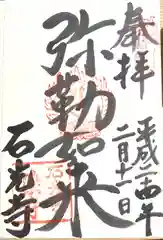 奉拝
平成二十五年
二月十一日
弥勒如来
石光寺